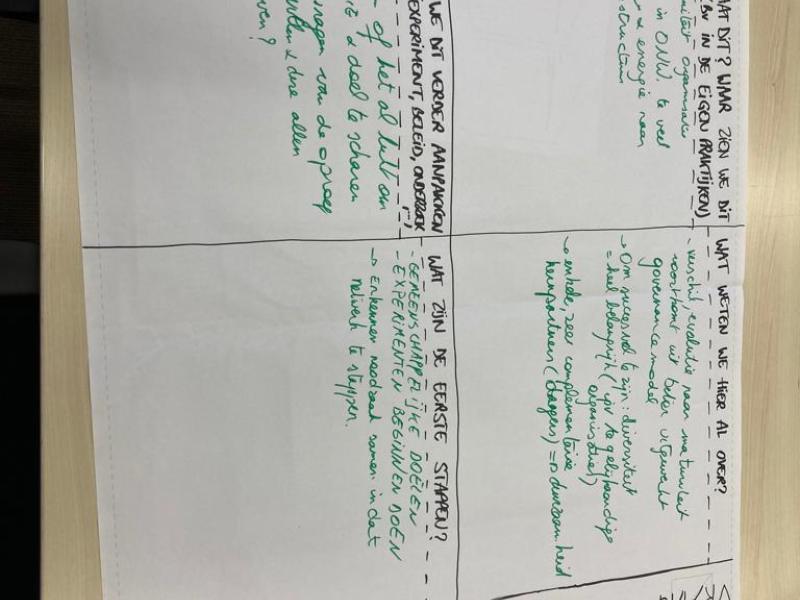 AAT DIT? WAAR ZIEN WE DIT
(BV IN DE EIGEN PRAKTIJKEN)
organisatie
in ONW, te veel
& energie naar
structuur
WAT WETEN WE HIER AL OVER?
- verschil evolutie naar maturiteit
voortkomt uit beter uitgewerkt
governance model
→ Om succesvol te zijn: diversiteit
= heel belangrijk (ipv te gelijkaardige
organisaties)
→ enkele, zeer complementaire
kernpartners (dragers) => duurzaamheid
WE DIT VERDER AANPAKKEN
EXPERIMENT, BELEID, ONDERZOEK
of het al lukt om
& doel te scharen
vragen van de oproep
willen & dose allen
ven?
WAT ZIJN DE EERSTE STAPPEN?
- GEMEENSCHAPPELIJKE DOELEN
- EXPERIMENTEN BEGINNEN DOEN
→ Erkennen noodzaak samen in dat
netwerk te stappen.